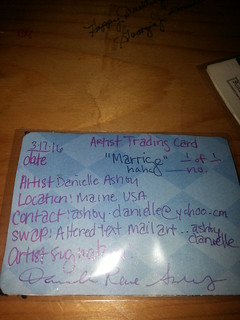 Artist Trading Card
3.17.16
date
"Marrige"
haha
1 of 1
no.
Artist Danielle Ashby
Location: Maine USA
Contact: ashby.danielle@yahoo.com
Swap: Altered Text mail art -- ashby danielle
Artist Signature